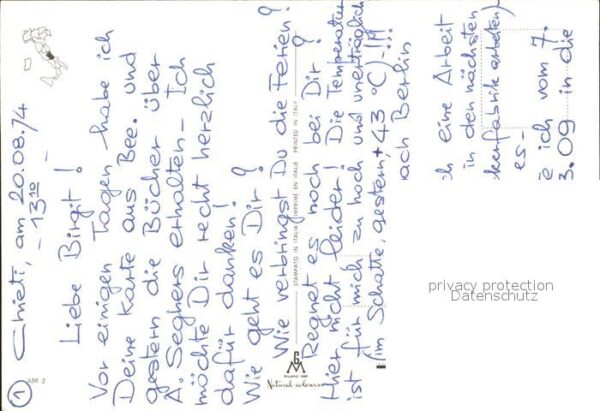 Chieti, am 20.08.74
- 13¹⁰ -
Liebe Birgit!
Vor einigen Tagen habe ich
Deine Karte aus Bee. und
gestern die Bücher über
A. Seghers erhalten - Ich
möchte Dir recht herzlich
dafür danken!
Wie geht es Dir?
Wie verbringst Du die Ferien?
Regnet es noch bei Dir?
Hier nicht leider! Die Temperatur
ist für mich zu hoch und unerträglich
(im Schatte, gestern, + 43 °C)!!!
nach Berlin
ch eine Arbeit
in den nächsten
kerfabrik arbeiten)
es-
e ich vom 7.
3.09 in die
1
ABR 2
STAMPATO IN ITALIA IMPRIMÉ EN ITALIE PRINTED IN ITALY
GM
Natural colour
privacy protection
Datenschutz